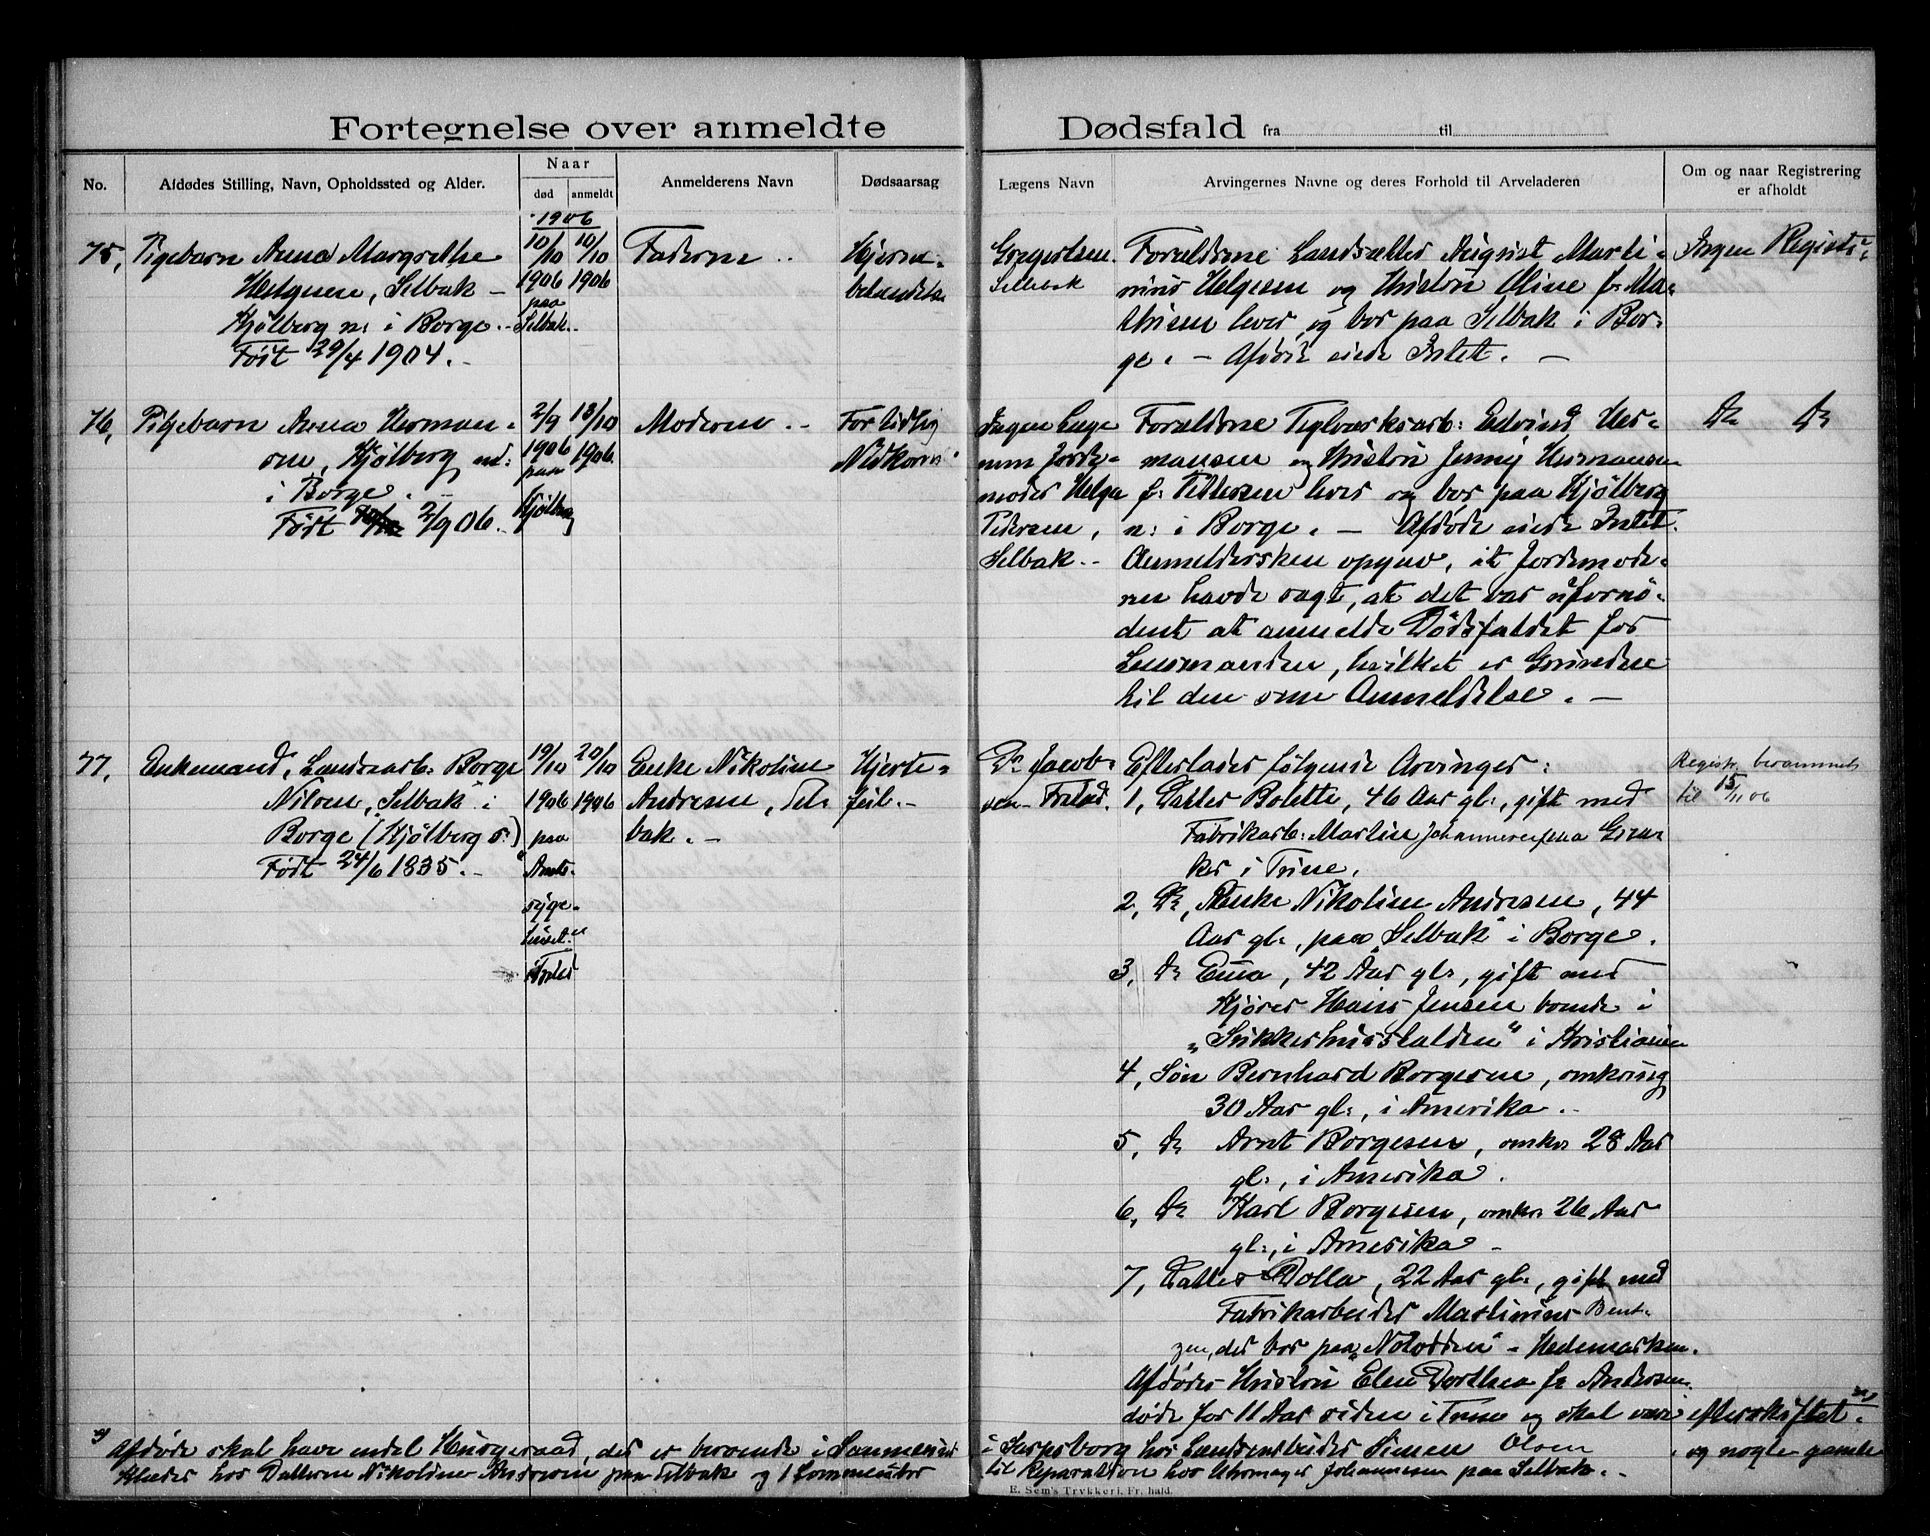 Fortegnelse over anmeldte Dødsfald fra til
No.
Afdødes Stilling, Navn, Opholdssted og Alder.
Naar
død
anmeldt
Anmelderens Navn
Dødsaarsag
Lægens Navn
Arvingernes Navne og deres Forhold til Arveladeren
Om og naar Registrering
er afholdt
1906
75,
Pigebarn Anna Margrethe
Helgesen, Selbak –
Kjølberg n: i Borge.–
Født 29/4 1904.–
10/10
1906
paa
Selbak.–
10/10
1906
Faderne ..
Hjerne-
betændelse
Gregertsen
Sellebak
Forældrene Landsætter August Marti-
nius Helgesen og Hustru Oline f. Ma-
thisen lever og bor paa Selbak i Bor-
ge. – Afdøde eiede Intet. –
Ingen Registr:
76,
Pigebarn Anna Herman-
sen, Kjølberg nd:
i Borge. –
Født 2/9 06.–
2/9
1906
paa
Kjølberg
13/10
1906.
Moderne ..
For tidlig
Nedkomst
Ingen Læge
men Jorde-
moder Helga
Pedersen,
Selbak.–
Forældrene Teglværksarb: Edvind Her-
mansen og Hustru Jenny Hermansen
f. Pettersen lever og bor paa Kjølberg
n: i Borge. – Afdøde eiede Intet.
Anmeldersken opgav, at Jordemode-
ren havde sagt, at det var ufornø-
dent at anmelde Dødsfaldet for
Lensmanden, hvilket er Grunden
til den sene Anmeldelse. –
Do Do
77,
Enkemand, Landsarb: Borge
Nilsen, "Selbak" i
Borge (Kjølberg s:)
Født 24/6 1835.–
19/10
1906
paa
Amts-
syge-
huset
20/10
1906
Enke Nikoline
Andresen, Sel-
bak.–
Hjerte-
feil.–
Dr Jacob-
sen Fr.stad.
Efterlader følgende Arvinger:
1, Datter Bolette, 46 Aar gl:, gift med
Fabrikarb: Martin Johannesen paa
ker i Trune.
2, Do, Enke Nikoline Andresen, 44
Aar gl:, paa "Selbak" i Borge.
3, Do Ema, 42 Aar gl:, gift med
Kjører Hans Jensen boende i
"Sukkerhusstalden" i Kristiania
4, Søn Bernhard Borgesen, omkring
30 Aar gl:, i Amerika.–
5, Do Arnt Borgesen, omkr. 28 Aar
gl:, i Amerika.
6, Do Karl Borgesen, omkr. 26 Aar
gl:, i Amerika –
7, Datter Dolla, 22 Aar gl:, gift med
Fabrikarbeider Martinius Bent-
zen, der bor paa "Notodden" – Hedemarken.
Afdødes Hustru Elen Dorthea f. Andersen
døde for 11 Aar siden i Trune og skal være efterskiftet.x)
Registr. berammet
til 15/11 06
x) Afdøde skal have endel Husgeraad, der er beroende i Sarpsborg hos Landarbeider Simen Olsen og nogle gamle
Klæder hos Datteren Nikoline Andresen paa Selbak og 1 Lommeuhr til Reparation hos Uhrmager Johannesen paa Selbak.–
E. Sem's Trykkeri, Fr.hald.